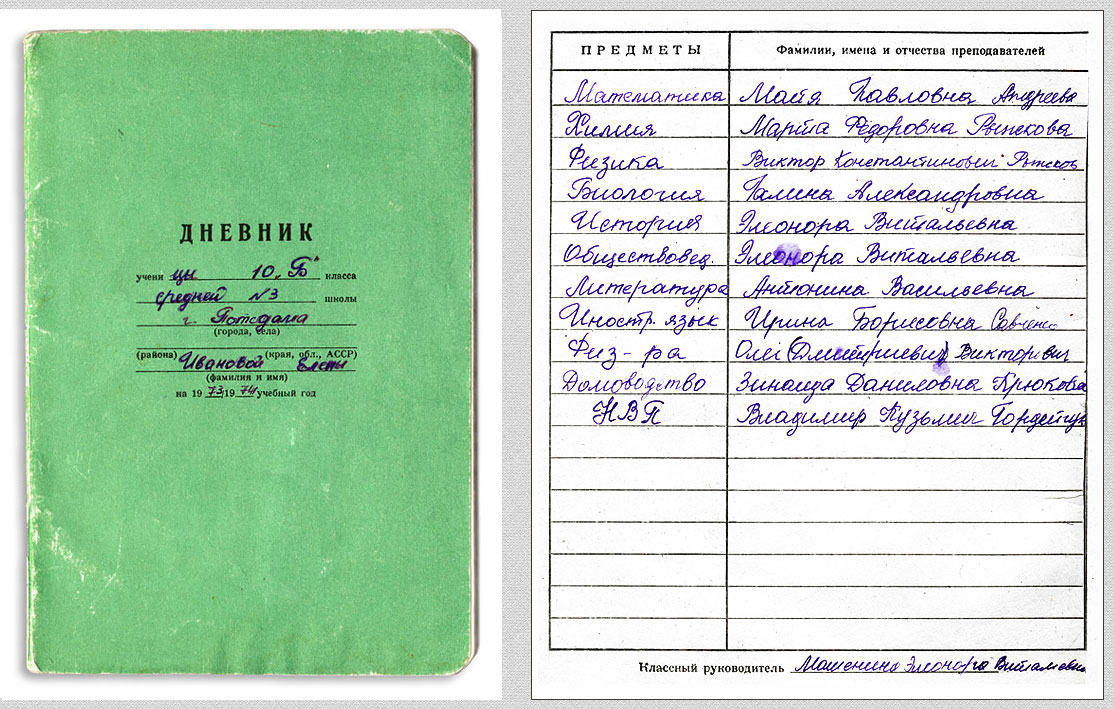 ДНЕВНИК
учени цы 10 „Б" класса
средней №3 школы
г. Потсдама
(города, села)
(района) (края, обл., АССР)
Ивановой Елены
(фамилия и имя)
на 19 73/19 74 учебный год
ПРЕДМЕТЫ Фамилии, имена и отчества преподавателей
Математика Майя Павловна Андреева
Химия Марта Фёдоровна Рыжкова
Физика Виктор Константинович Рыжков
Биология Галина Александровна
История Элеонора Витальевна
Обществовед. Элеонора Витальевна
Литература Антонина Васильевна
Иностр. язык Ирина Борисовна Савченко
Физ-ра Олег (Дмитриевич) Викторович
Домоводство Зинаида Даниловна Крюкова
НВП Владимир Кузьмич Гордейчук
Классный руководитель Машенина Элеонора Витальевна